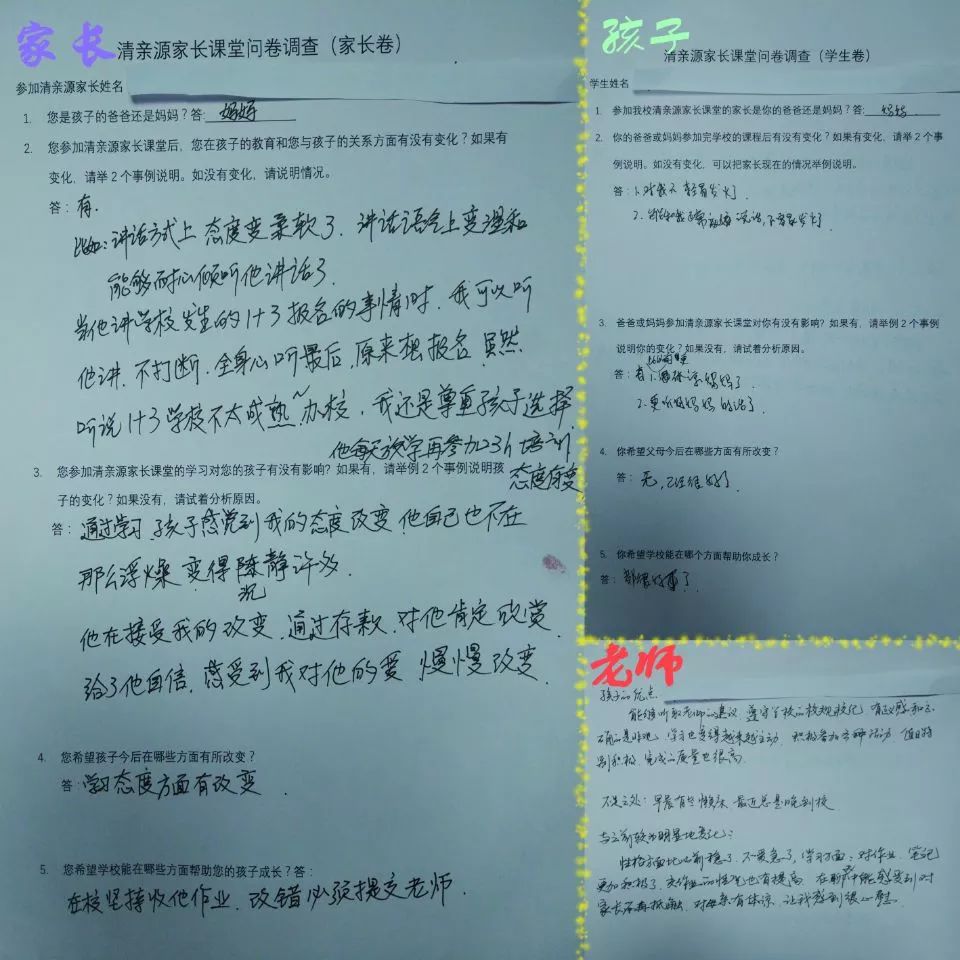 家长
清亲源家长课堂问卷调查（家长卷）
参加清亲源家长姓名
1. 您是孩子的爸爸还是妈妈？答：妈妈
2. 您参加清亲源家长课堂后，您在孩子的教育和您与孩子的关系方面有没有变化？如果有
变化，请举2个事例说明。如没有变化，请说明情况。
答：有.
比如：讲话方式上 态度变柔软了. 讲话语气上变温和
能够耐心倾听他讲话了
当他讲学校发生的1+3报名的事情时. 我可以听
他讲. 不打断. 全身心听最后, 原来想报名 虽然
听说1+3学校不太成熟~办校. 我还是尊重孩子选择
他每天放学再参加23h培训
态度有变
3. 您参加清亲源家长课堂的学习对您的孩子有没有影响？如果有，请举例2个事例说明孩
子的变化？如果没有，请试着分析原因。
答：通过学习 孩子感觉到我的态度改变. 他自己也不在
那么浮燥 变得沉静许多.
他在接受我的改变. 通过存款. 对他肯定欣赏
给了他自信. 感受到我对他的爱 慢慢改变.
4. 您希望孩子今后在哪些方面有所改变？
答：学习态度方面有改变.
5. 您希望学校能在哪些方面帮助您的孩子成长？答：
在校坚持收他作业. 改错必须提交老师.
孩子
清亲源家长课堂问卷调查（学生卷）
学生姓名
1. 参加我校清亲源家长课堂的家长是你的爸爸还是妈妈？答：妈妈.
2. 你的爸爸或妈妈参加完学校的课程后有没有变化？如果有变化，请举2个事
例说明。如没有变化，可以把家长现在的情况举例说明。
答：1. 对我不 发火了
2. 说话, 不 发火了
3. 爸爸或妈妈参加清亲源家长课堂对你有没有影响？如果有，请举例2个事例
说明你的变化？如果没有，请试着分析原因。
答：有 1. 体谅妈妈了.
2. 更听妈妈的话了.
4. 你希望父母今后在哪些方面有所改变？
答：无, 已经很好了.
5. 你希望学校能在哪个方面帮助你成长？
答：都很好了
老师
孩子的优点.
能够听取老师的建议. 遵守学校的校规校纪. 有
是非观, 学习也变得越来越主动. 积极参加各种活动 值日特
别积极. 完成的质量也很高.
不足之处：早晨有些懒床 最近总是晚到校
与之前较为明显地变化：
性格方面比以前稳了. 不 急了, 学习方面：对作业. 笔记
更加积极了. 交作业的情况也有提高. 在聊天中能感受到对
家长不再抵触. 对母亲有体谅. 让我感到很心慰.